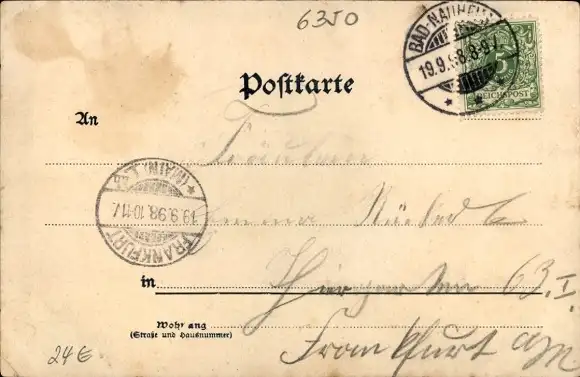 6350
BAD-NAUHEIM
19.9.98.8-9V.
5
REICHSPOST
Postkarte
An
Fräulein
Emma
FRANKFURT (MAIN) 1.
19.9.98.10-11V.
in
63. I.
Wohnung
(Straße und Hausnummer)
Frankfurt a/M
24€